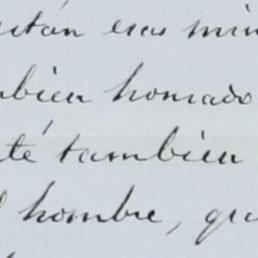 están esas min
mbien homado
té también
l hombre, qu